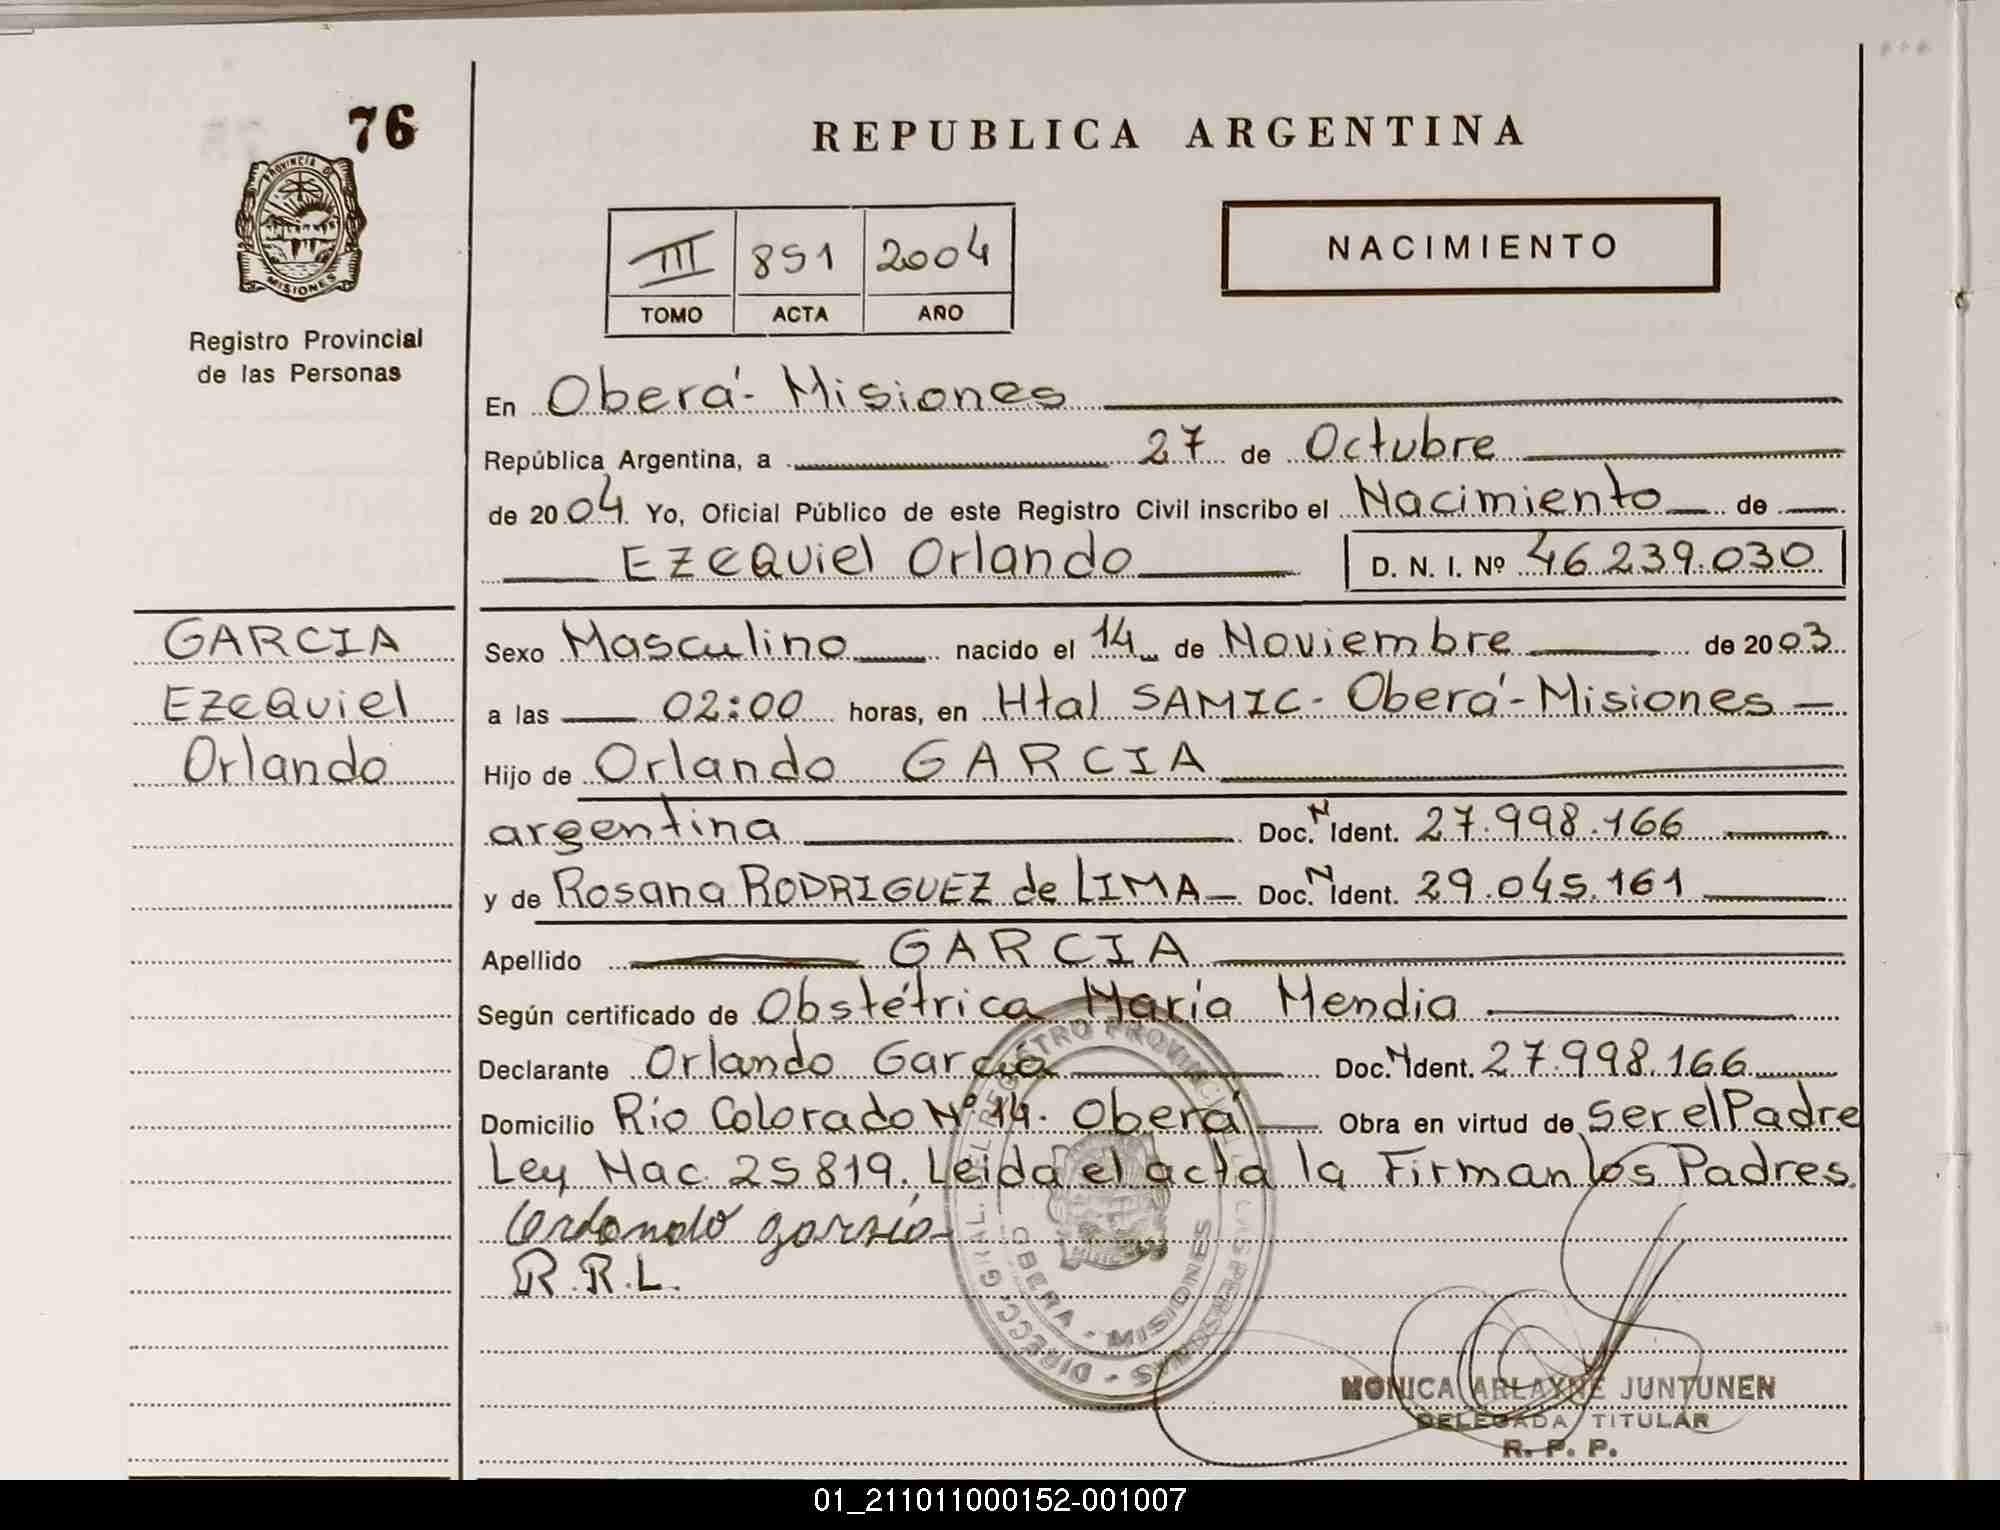 76
PROVINCIA DE
MISIONES
Registro Provincial
de las Personas
REPUBLICA ARGENTINA
III 851 2004
TOMO ACTA AÑO
NACIMIENTO
En Oberá - Misiones
República Argentina, a 27 de Octubre
de 2004. Yo, Oficial Público de este Registro Civil inscribo el Nacimiento de
EZEQUiel Orlando D. N. I. Nº 46.239.030
GARCIA
EZEQUiel
Orlando
Sexo Masculino nacido el 14 de Noviembre de 2003
a las 02:00 horas, en Htal SAMIC - Oberá - Misiones
Hijo de Orlando GARCIA
argentina Doc. N Ident. 27.998.166
y de Rosana RODRIGUEZ de LIMA Doc. N Ident. 29.045.161
Apellido GARCIA
Según certificado de Obstétrica María Mendia
Declarante Orlando Garcia Doc. N Ident. 27.998.166
Domicilio Río Colorado Nº 14. Oberá Obra en virtud de Ser el Padre
Ley Nac. 25819. Leida el acta la Firman los Padres.
R.R.L.
DIRECC. GRAL. DEL REGISTRO PROVINCIAL DE LAS PERSONAS
OBERA - MISIONES
MONICA ARLAYNE JUNTUNEN
DELEGADA TITULAR
R. P. P.
01_211011000152-001007